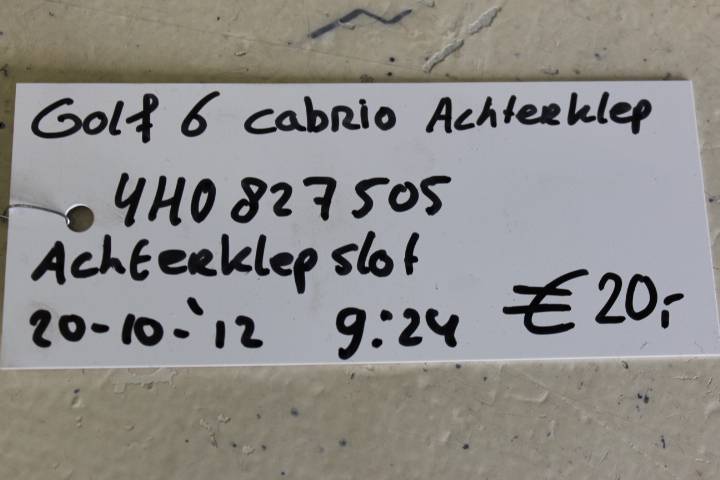 Golf 6 cabrio Achterklep
4H0 827 505
Achterklep slot
20-10-'12 9:24 € 20,-